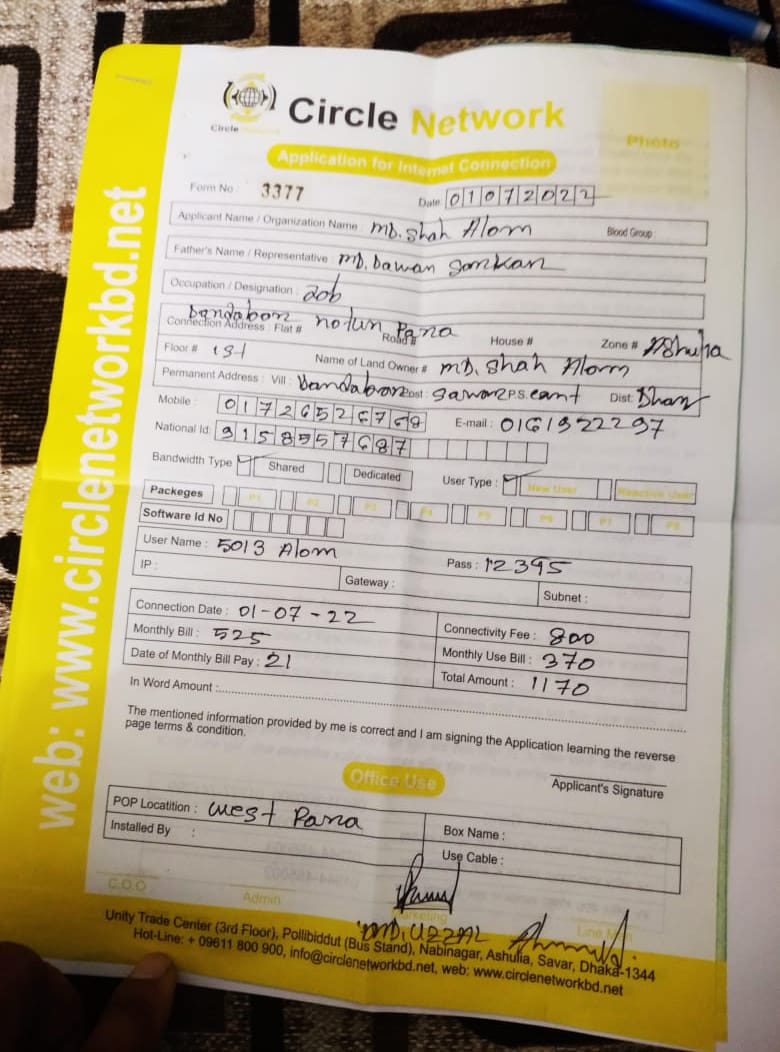 Circle Network
Circle
Application for Internet Connection
Photo
Form No : 3377
Date 01072022
Applicant Name / Organization Name : MD. Shah Alom Blood Group :
Father's Name / Representative : MD. Dawan
Occupation / Designation : Job
Connection Address : Flat # Bandabon notun Para Road # House # Zone #
Floor # 1st Name of Land Owner # MD. Shah Alom
Permanent Address : Vill : Bandabon Post : Savar P.S. cant Dist:
Mobile : 01726526768 E-mail :
National Id:
Bandwidth Type Shared Dedicated User Type : New User Reactive User
Packeges P1 P2 P3 P4 P5 P6 P7 P8
Software Id No
User Name : 5013 Alom Pass : 12395
IP : Gateway : Subnet :
Connection Date : 01-07-22 Connectivity Fee : 800
Monthly Bill : 525 Monthly Use Bill : 370
Date of Monthly Bill Pay : 21 Total Amount : 1170
In Word Amount :
The mentioned information provided by me is correct and I am signing the Application learning the reverse
page terms & condition.
Applicant's Signature
Office Use
POP Locatition : West Para Box Name :
Installed By : Use Cable :
C.O.O Admin Marketing Line Man
MD. UZZAL
Unity Trade Center (3rd Floor), Pollibiddut (Bus Stand), Nabinagar, Ashulia, Savar, Dhaka-1344
Hot-Line: + 09611 800 900, info@circlenetworkbd.net, web: www.circlenetworkbd.net
web: www.circlenetworkbd.net